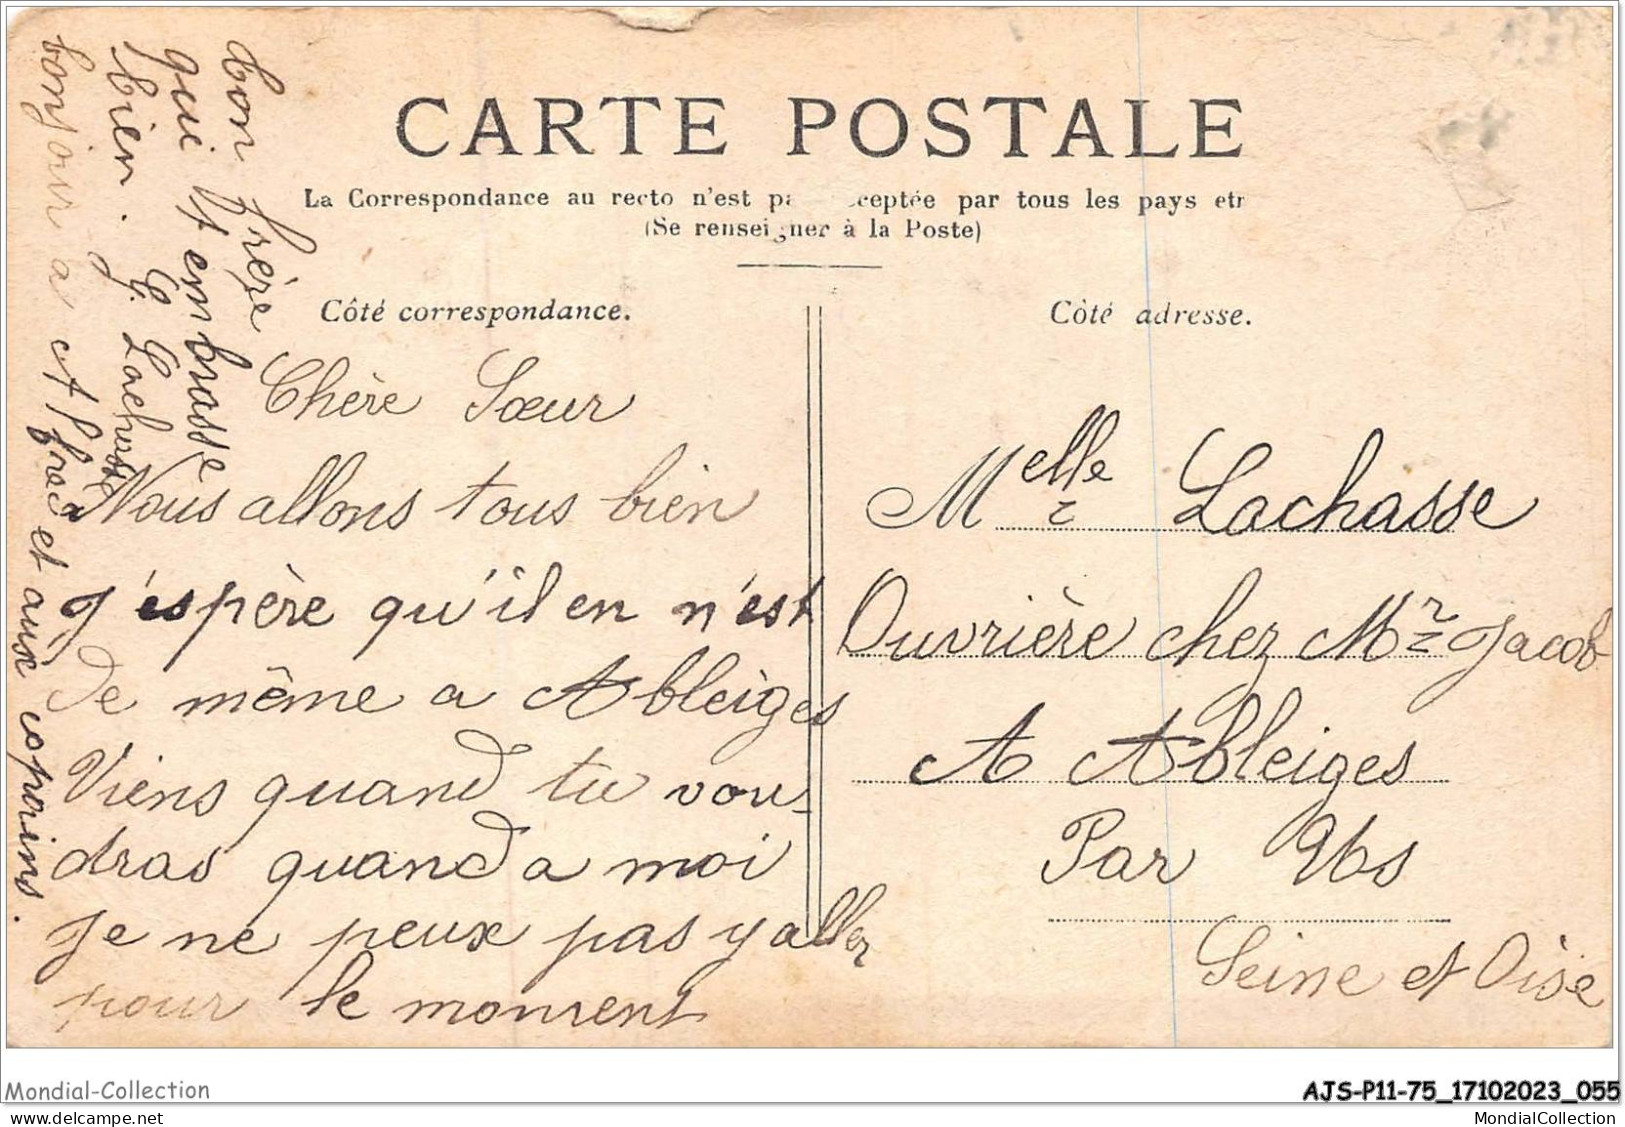 CARTE POSTALE
La Correspondance au recto n'est pa ceptée par tous les pays etr
(Se renseigner à la Poste)
Côté correspondance.
Côté adresse.
Chère Sœur
Nous allons tous bien
J'espère qu'il en n'est
de même a Ableiges
Viens quand tu vou-
dras quand a moi
Je ne peux pas y aller
pour le moment
bon frère
qui t'embrasse
bien. G. Lachasse
bonjour a Alfred et aux copains.
Melle Lachasse
Ouvrière chez Mr Jacob
A Ableiges
Par Us
Seine et Oise
Mondial-Collection
AJS-P11-75_17102023_055
www.delcampe.net
MondialCollection